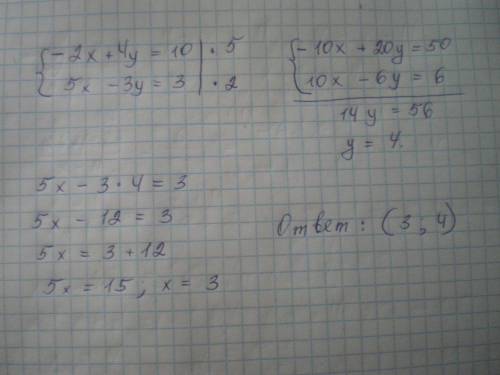 { -2x + 4y = 10 | · 5
5x - 3y = 3 | · 2
{ -10x + 20y = 50
10x - 6y = 6
14y = 56
y = 4.
5x - 3 · 4 = 3
5x - 12 = 3
5x = 3 + 12
5x = 15; x = 3
Ответ: (3; 4)